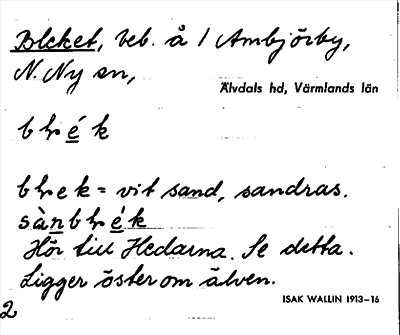 Bleket, beb. å 1 Ambjörby,
N. Ny sn,
Älvdals hd, Värmlands län
blék
blek = vit sand, sandras.
sànblék
Hör till Hedarna. Se detta.
Ligger öster om älven.
ISAK WALLIN 1913–16
2